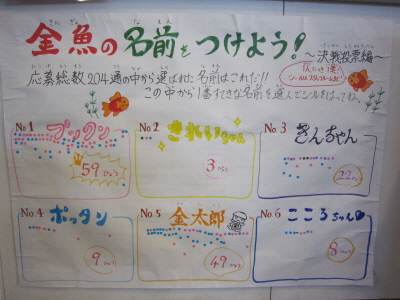 金魚の名前をつけよう!
〜決戦投票編〜
応募総数204通の中から選ばれた名前はこれだ!!
この中から1番すてきな名前を選んでシールをはってね。
No 1
プックン
59ひょう
No 2
きれいちゃん
3ひょう
No. 3
きんちゃん
22ひょう
No 4
ポッタン
9ひょう
No 5
金太郎
49ひょう
No 6
こころちゃん
8ひょう